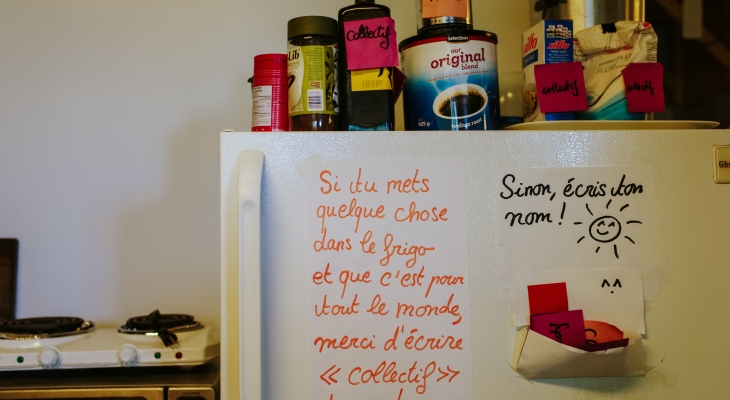 Collectif
Selection
our
original
blend
925 g
medium roast
collectif
collectif
Si tu mets
quelque chose
dans le frigo
et que c'est pour
tout le monde,
merci d'écrire
« collectif »
Sinon, écris ton
nom !
^^